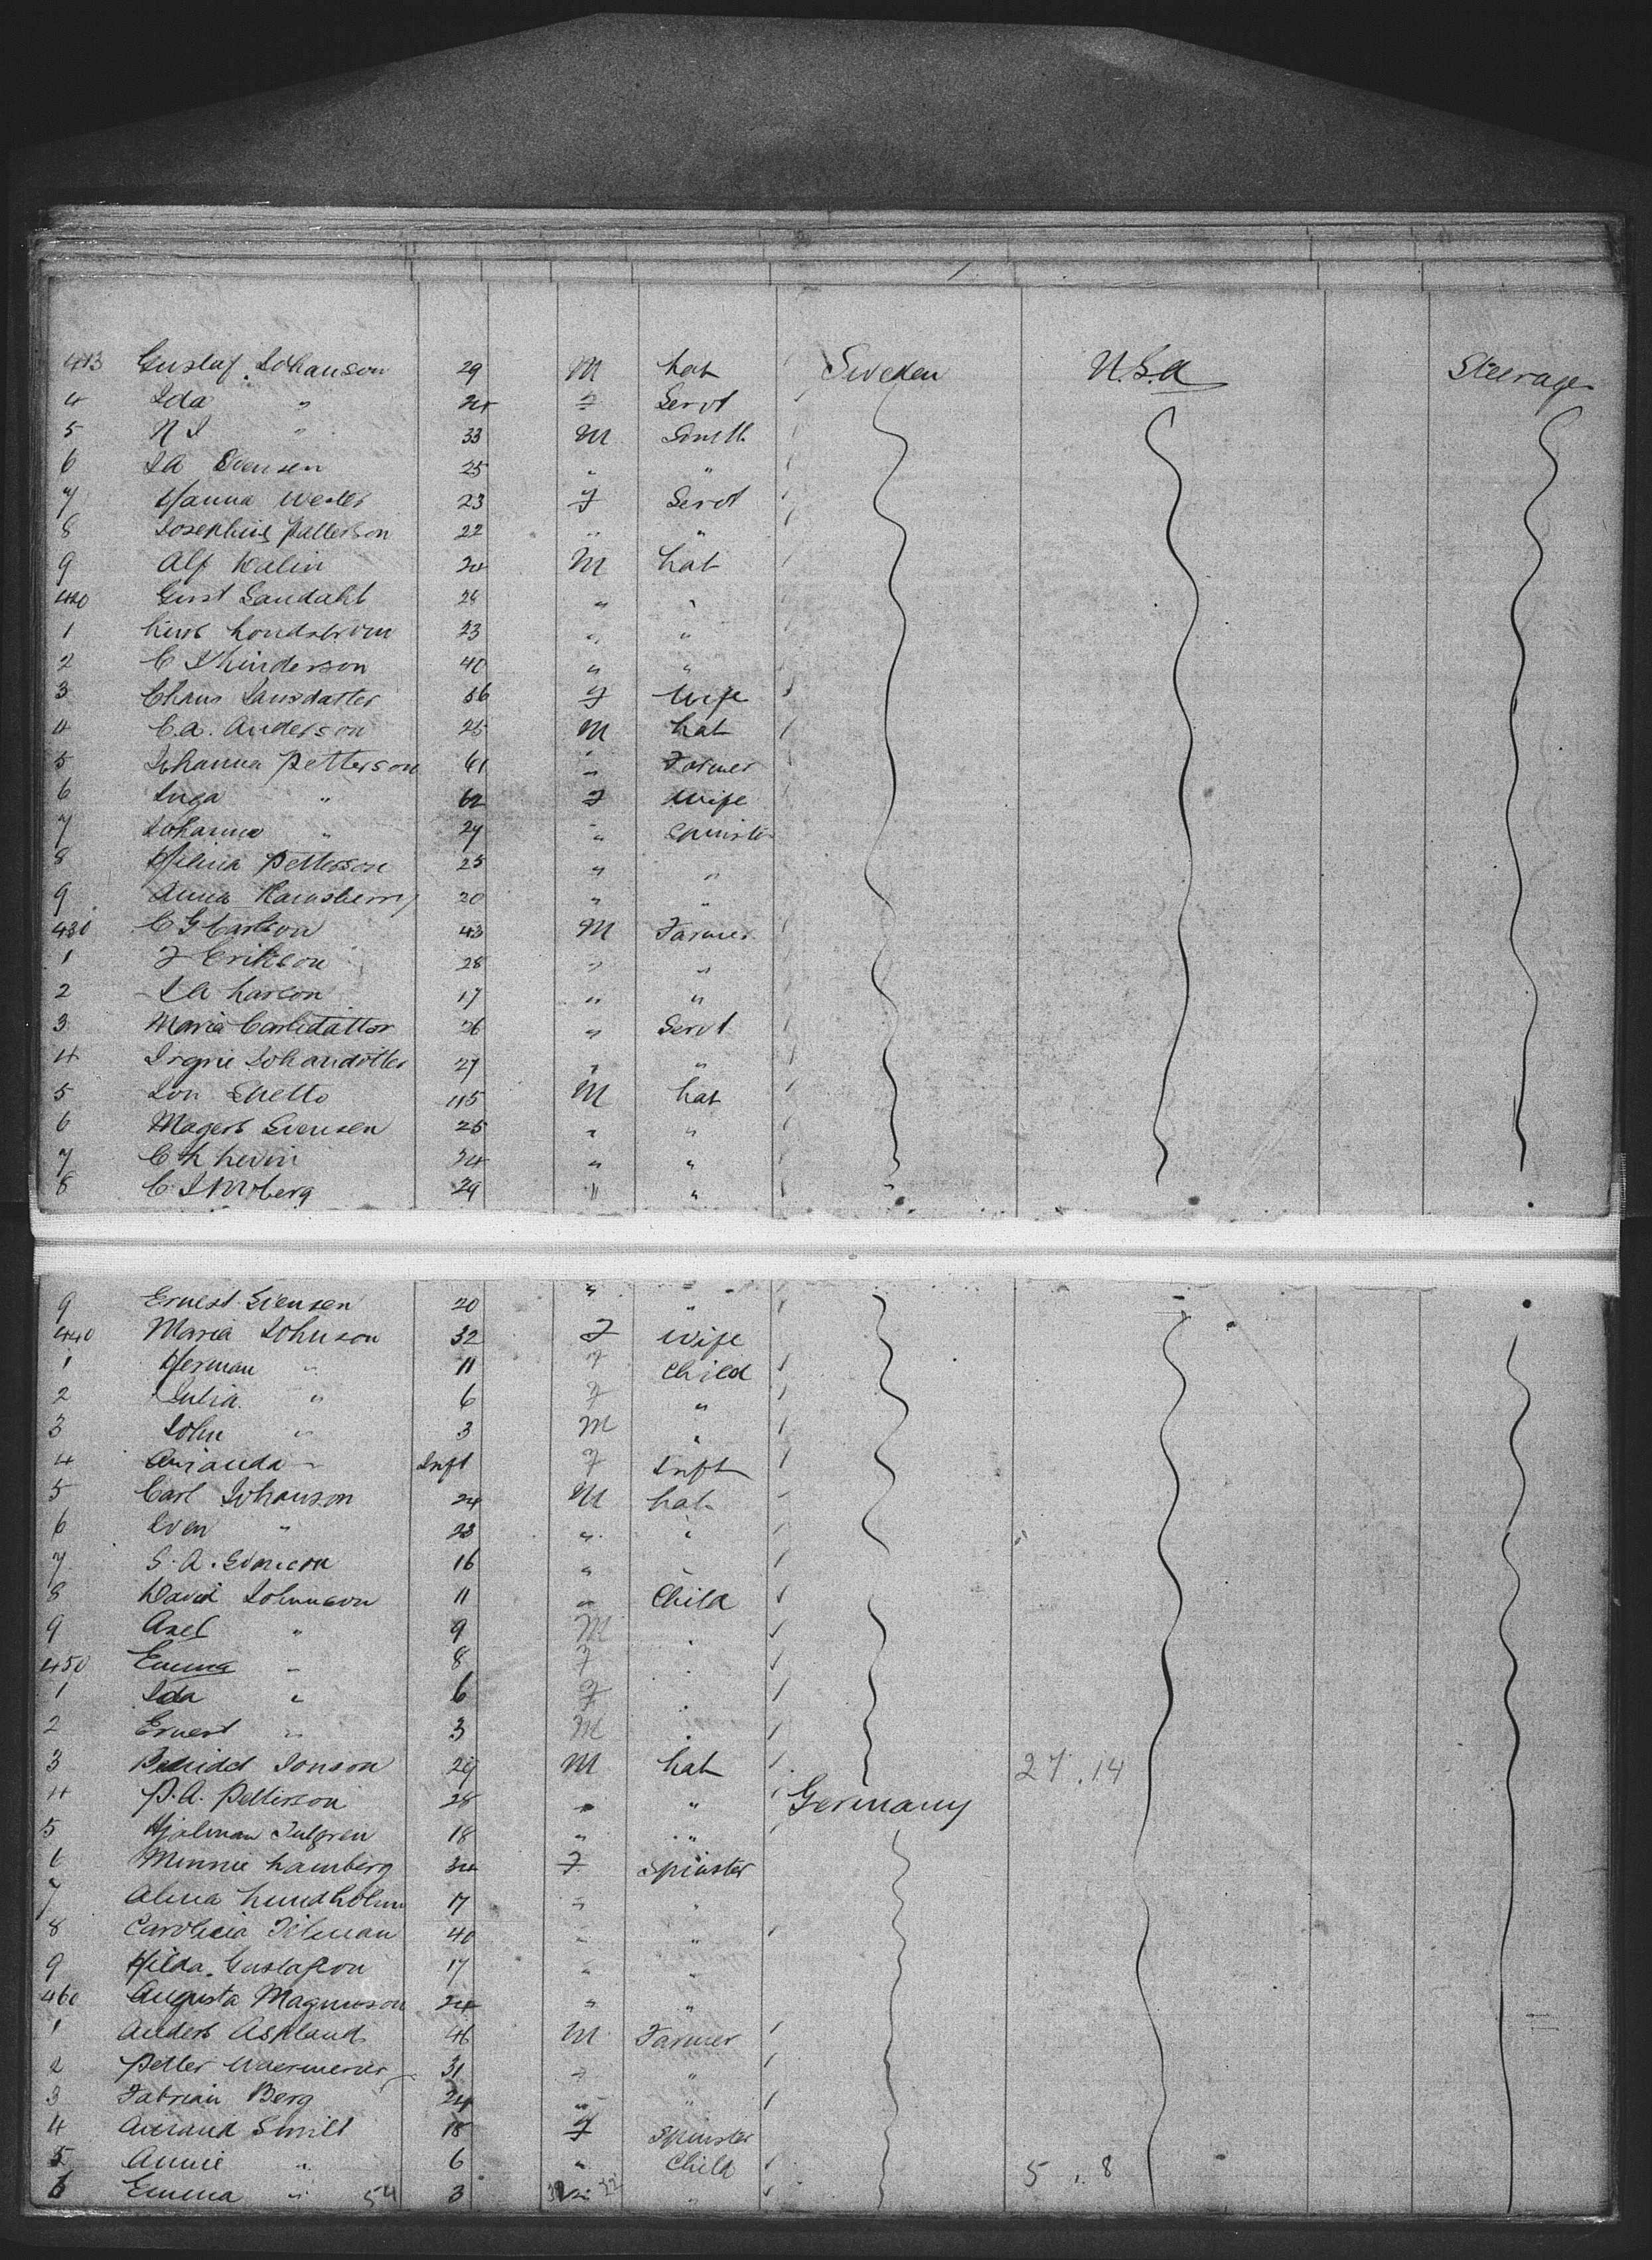 413 Gustaf Johanson 29 M Lab Sweden U.S.A Steerage
4 Ida " 24 F Servt
5 N J " 33 M Smith
6 J A Svensen 25 " "
7 Hanna 23 F Servt
8 Josephine Patterson 22 " "
9 Alf Dalin 20 M Lab
420 Gust Sandahl 28 " "
1 Lundstrom 23 " "
2 C 40 " "
3 Jansdatter F Wife
4 C.A. Anderson 25 M Lab
5 Johanna Petterson 61 " Farmer
6 Inga " 62 F Wife
7 Johanna " 27 " Spinster
8 Petterson 25 " "
9 Anna 20 " "
430 C G Carlson 43 M Farmer
1 F Erikson 28 " "
2 J A Larson 17 " "
3 Maria Carlsdatter 26 " Servt
4 27 " "
5 Jon M Lab
6 Svensen 25 " "
7 C Levin 24 " "
8 C J Moberg 29 " "
9 Ernest Svensen 20 " "
440 Maria Johnson 32 F Wife
1 Herman " 11 F Child
2 Julia " 6 F "
3 John " 3 M "
4 Amanda " Inft F Inft
5 Carl Johanson 24 M Lab
6 Sven " 23 " "
7 S. A. 16 " "
8 David Johnson 11 " Child
9 Axel " 9 M "
450 Emma " 8 F "
1 Ida " 6 F "
2 Ernest " 3 M "
3 Jonson 29 M Lab 27 . 14
4 P. A. Petterson 28 " " Germany
5 Hjalmar 18 " "
6 Minnie Lamberg 34 F Spinster
7 Alma Lundholm 17 " "
8 Carolina 40 " "
9 Hilda Gustafson 17 " "
460 Augusta Magnuson 24 " "
1 Anders Ashland 46 M Farmer
2 Petter 31 " "
3 Fabrian Berg 24 " "
4 18 F Spinster
5 Annie " 6 " Child 5 . 8
6 Emma " 54 3 " "